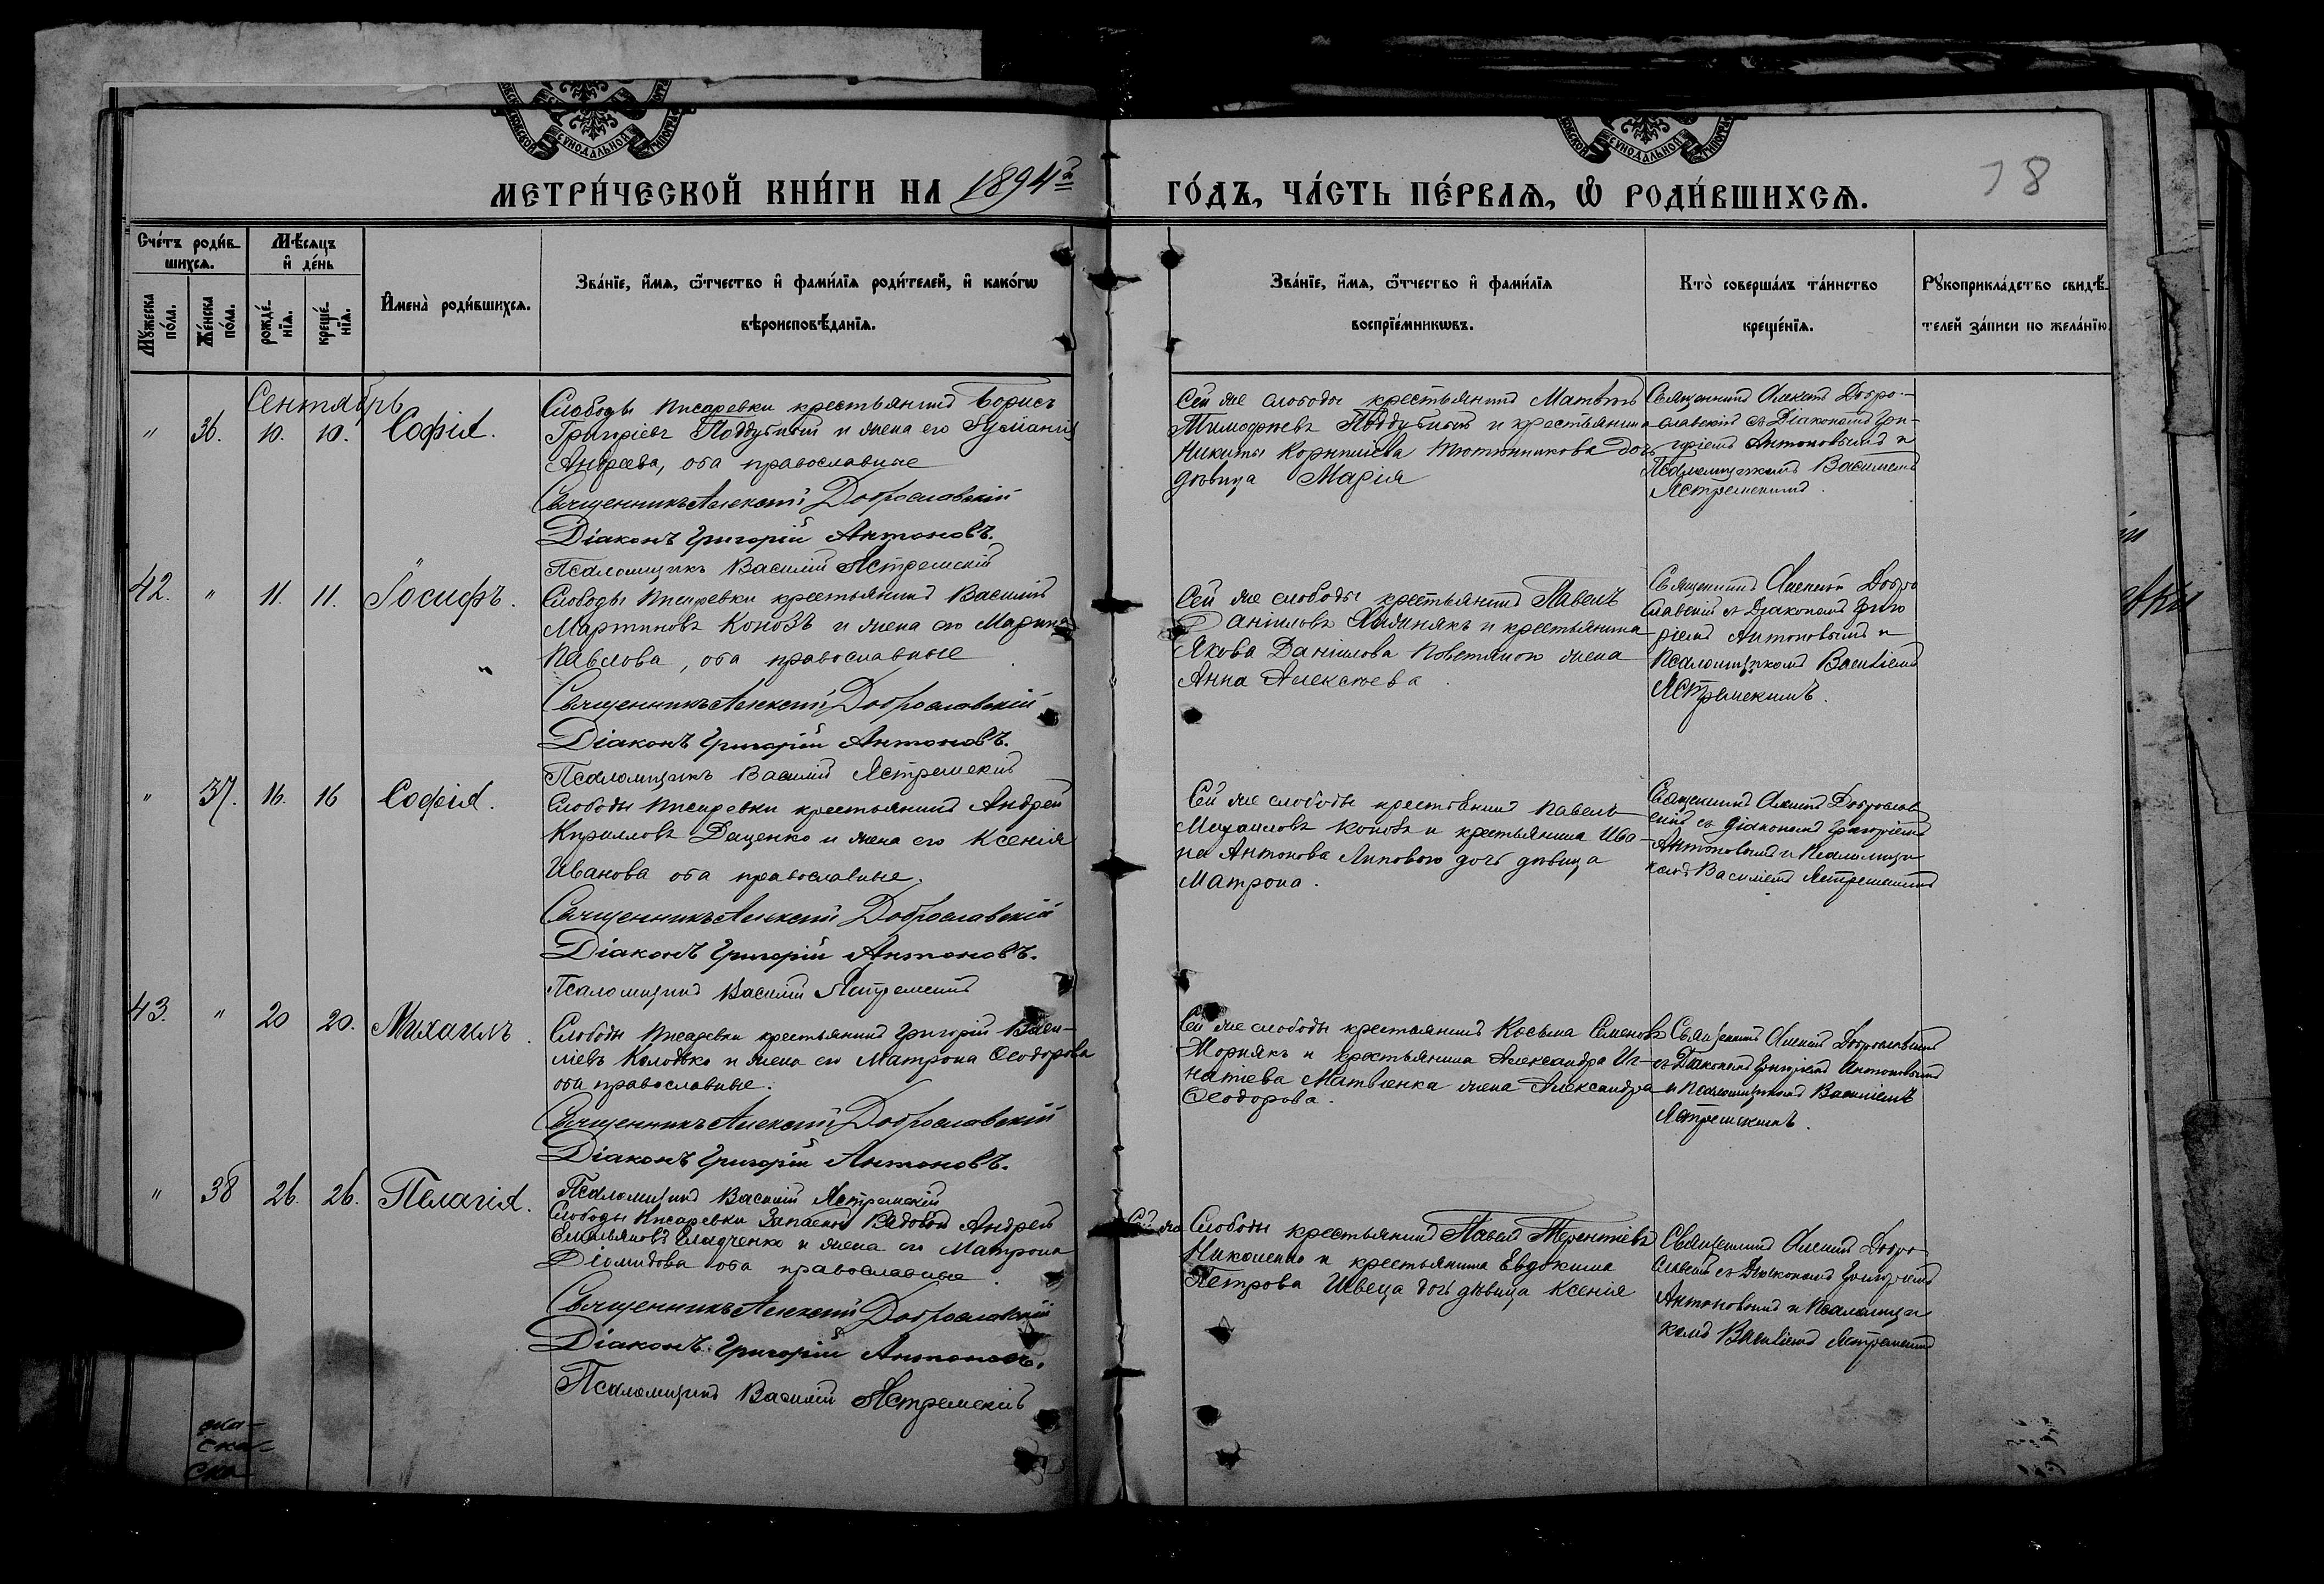 МЕТРИ́ЧЕСКОЙ КНИ́ГИ НА 1894й
ГО́ДЪ, ЧА́СТЬ ПЕ́РВАЯ, Ѡ РОДИ́ВШИХСЯ.
18
Счéтъ роди́в-
шихся.
Мѣ́сяцъ
и҆ де́нь
Мꙋ́жеска
по́ла.
Же́нска
по́ла.
рожде́-
нїѧ.
креще́-
нїѧ.
И҆мена̀ роди́вшихсѧ.
Зва́нїе, и҆́мѧ, ѻ҆́тчество и҆ фами́лїѧ роди́телей, и҆ како́гѡ
вѣроисповѣ́данїѧ.
Зва́нїе, и҆́мѧ, ѻ҆́тчество и҆ фами́лїѧ
воспрїе́мникѡвъ.
Кто̀ соверша́лъ та́инство
креще́нїѧ.
Рꙋкоприкла́дство свидѣ́-
телей за́писи по жела́нїю
Сентябрь
" 36. 10. 10. Софія.
Слободы Писаревки крестьянинъ Борисъ
Григоріевъ Поддубный и жена его
Андреева, оба православные
Священникъ Алексій Доброславскій
Діаконъ Григорій Антоновъ.
Псаломщикъ Василій Ястремскій
Сей же слободы крестьянинъ Матвѣй
Тимофѣевъ Поддубный и крестьянина
Никиты Корнѣева Тютюнникова дочь
дѣвица Марія
Священникъ Алексій Добро-
славскій съ Діакономъ Гри-
горіемъ Антоновымъ и
Псаломщикомъ Василіемъ
Ястремскимъ.
42. " 11. 11. Іосифъ.
Слободы Писаревки крестьянинъ Василій
Мартиновъ Коновъ и жена его Марина
Павлова, оба православные
Священникъ Алексій Доброславскій
Діаконъ Григорій Антоновъ.
Псаломщикъ Василій Ястремскій
Сей же слободы крестьянинъ Павелъ
Даніиловъ и крестьянина
Якова Даніилова жена
Анна Алексѣева.
Священникъ Алексій Добро
славскій съ Діакономъ Григо
ріемъ Антоновымъ и
Псаломщикомъ Василіемъ
Ястремскимъ.
" 37. 16. 16 Софія.
Слободы Писаревки крестьянинъ Андрей
Кирилловъ Даценко и жена его Ксенія
Иванова оба православные.
Священникъ Алексій Доброславскій
Діаконъ Григорій Антоновъ.
Псаломщикъ Василій Ястремскій
Сей же слободы крестьянинъ Павелъ
Михаиловъ Коновъ и крестьянина Ива-
на Антонова Липового дочь дѣвица
Матрона.
Священникъ Алексій Доброслав
скій съ Діакономъ Григоріемъ
Антоновымъ и Псаломщи
комъ Василіемъ Ястремскимъ
43. " 20 20. Михаилъ.
Слободы Писаревки крестьянинъ Григорій Васи-
ліевъ Колодько и жена его Матрона Ѳеодорова
оба православные.
Священникъ Алексій Доброславскій
Діаконъ Григорій Антоновъ.
Псаломщикъ Василій Ястремскій
Сей же слободы крестьянинъ Косьма Семеновъ
и крестьянина Александра Иг-
натіева Матвіенка жена Александра
Ѳеодорова.
Священникъ Алексій Доброславскій
съ Діакономъ Григоріемъ Антоновымъ
и Псаломщикомъ Василіемъ
Ястремскимъ.
" 38 26. 26. Пелагія.
Слободы Писаревки Запасной Рядовой Андрей
Емельяновъ и жена его Матрона
Діомидова оба православные.
Священникъ Алексій Доброславскій
Діаконъ Григорій Антоновъ.
Псаломщикъ Василій Ястремскій
Сей же Слободы крестьянинъ Павелъ Терентіевъ
Николенко и крестьянина Евдокима
Петрова Швеца дочь дѣвица Ксенія
Священникъ Алексій Добро
славскій съ Діакономъ Григоріемъ
Антоновымъ и Псаломщи
комъ Василіемъ Ястремскимъ